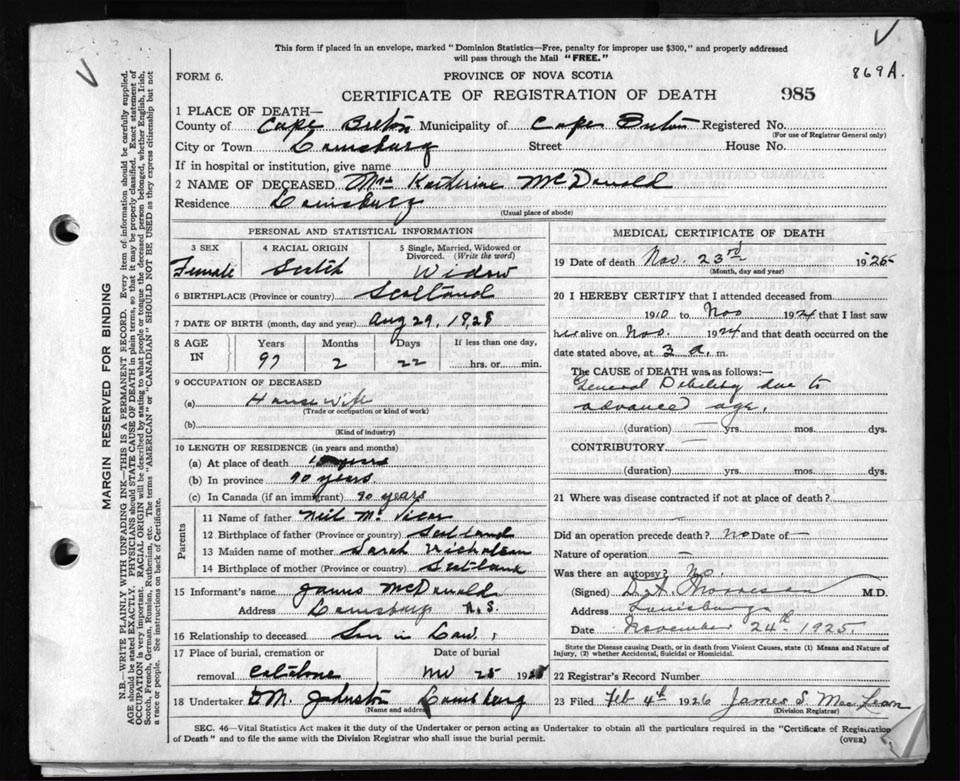 This form if placed in an envelope, marked "Dominion Statistics—Free, penalty for improper use $300," and properly addressed
will pass through the Mail "FREE."
869A.
FORM 6.
PROVINCE OF NOVA SCOTIA
CERTIFICATE OF REGISTRATION OF DEATH
985
1 PLACE OF DEATH—
County of Cape Breton Municipality of Cape Breton Registered No.
(For use of Registrar General only)
City or Town Louisburg Street House No.
If in hospital or institution, give name
2 NAME OF DECEASED Mrs Katherine McDonald
Residence Louisburg
(Usual place of abode)
PERSONAL AND STATISTICAL INFORMATION
3 SEX
Female
4 RACIAL ORIGIN
Scotch
5 Single, Married, Widowed or
Divorced. (Write the word)
Widow
6 BIRTHPLACE (Province or country) Scotland
7 DATE OF BIRTH (month, day and year) Aug 29, 1828
8 AGE
IN
Years Months Days
97 2 22
If less than one day,
hrs. or min.
9 OCCUPATION OF DECEASED
(a) House Wife
(Trade or occupation or kind of work)
(b)
(Kind of industry)
10 LENGTH OF RESIDENCE (in years and months)
(a) At place of death years
(b) In province 90 years
(c) In Canada (if an immigrant) 90 years
Parents
11 Name of father Neil Mc Vicar
12 Birthplace of father (Province or country) Scotland
13 Maiden name of mother Sarah Nicholson
14 Birthplace of mother (Province or country) Scotland
15 Informant's name James McDonald
Address Louisburg N.S.
16 Relationship to deceased Son in Law
17 Place of burial, cremation or
removal Catalone
Date of burial
Nov 25 1925
18 Undertaker M. Johnston Louisburg
(Name and address)
MEDICAL CERTIFICATE OF DEATH
19 Date of death Nov. 23rd 1925
(Month, day and year)
20 I HEREBY CERTIFY that I attended deceased from
1910 to Nov 1924 that I last saw
her alive on Nov. 1924 and that death occurred on the
date stated above, at 3 a. m.
The CAUSE of DEATH was as follows:—
General Debility due to
advanced age.
(duration) — yrs. mos. dys.
CONTRIBUTORY —
(duration) yrs. mos. dys.
21 Where was disease contracted if not at place of death?
—
Did an operation precede death? No Date of —
Nature of operation —
Was there an autopsy? No.
(Signed) D. A. Morrison M.D.
Address Louisburg
Date November 24th 1925.
State the Disease causing Death, or in death from Violent Causes, state (1) Means and Nature of
Injury, (2) whether Accidental, Suicidal or Homicidal.
22 Registrar's Record Number
23 Filed Feb 4th 1926 James S. MacLean
(Division Registrar)
SEC. 46—Vital Statistics Act makes it the duty of the Undertaker or person acting as Undertaker to obtain all the particulars required in the "Certificate of Registration
of Death" and to file the same with the Division Registrar who shall issue the burial permit.
(OVER)
MARGIN RESERVED FOR BINDING
N.B.—WRITE PLAINLY WITH UNFADING INK—THIS IS A PERMANENT RECORD. Every item of information should be carefully supplied.
AGE should be stated EXACTLY. PHYSICIANS should STATE CAUSE OF DEATH in plain terms, so that it may be properly classified. Exact statement of
OCCUPATION is very important. RACIAL ORIGIN will be described by stating to what people or tongue the deceased person belonged, whether English, Irish,
Scotch, French, German, Russian, Ruthenian, etc. The terms "AMERICAN" or "CANADIAN" SHOULD NOT BE USED as they express citizenship but not
a race or people. See instructions on back of Certificate.